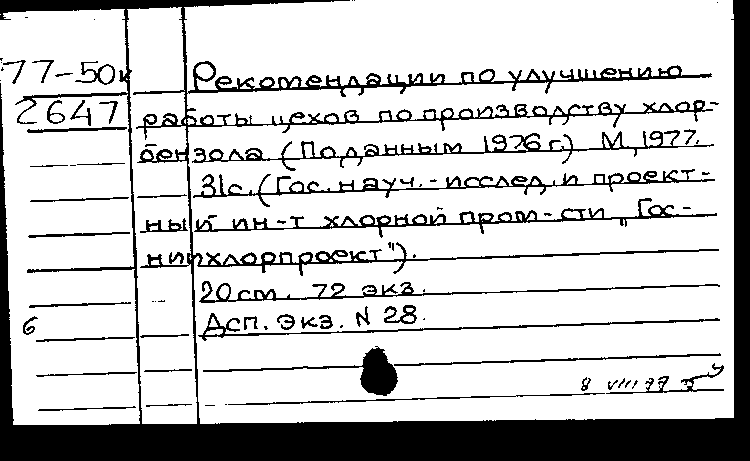 77-50к Рекомендации по улучшению
2647 работы цехов по производству хлор-
бензола (По данным 1976 г.) М, 1977.
31с. (Гос. науч.-исслед. и проект-
ный ин-т хлорной пром-сти „Гос-
ниихлорпроект").
20 см. 72 экз.
б Дсп. Экз. N 28.
8 VIII 77